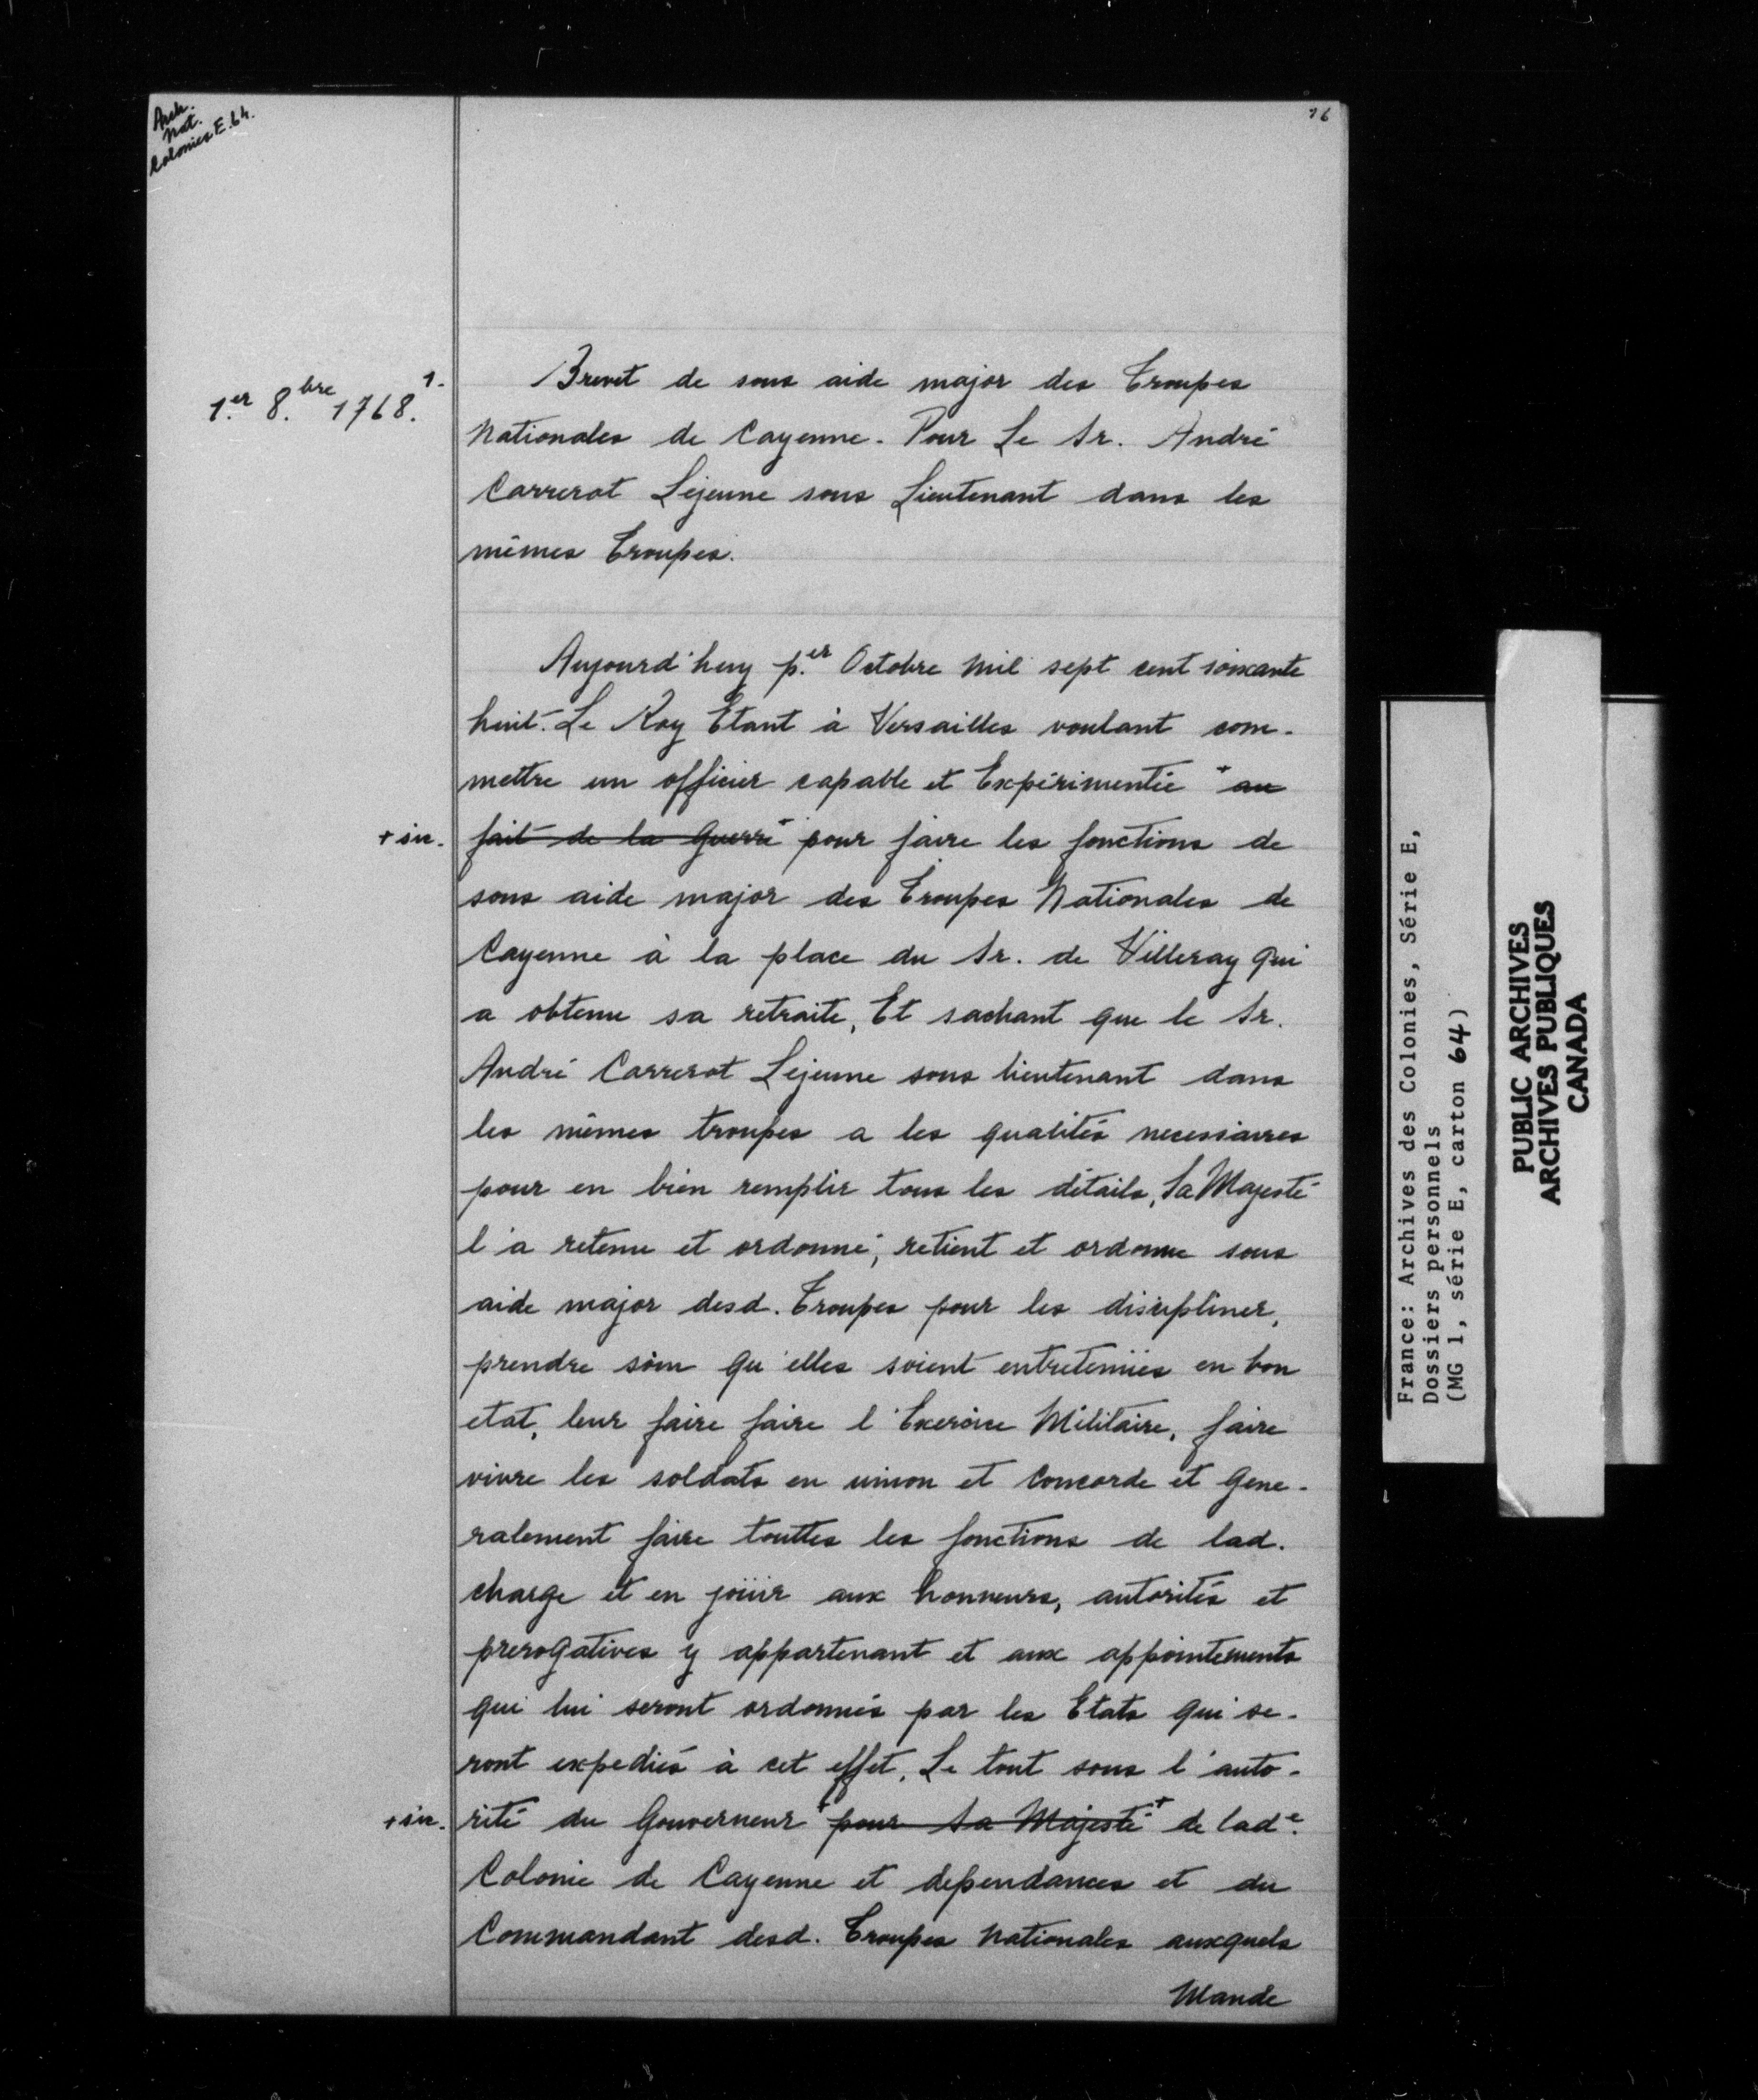 Arch.
Nat.
Colonies E. 64.
76
1.er 8.bre 1768.
1.
Brevet de sous aide major des Troupes
Nationales de Cayenne. Pour Le Sr. André
Carrerot Lejeune sous Lieutenant dans les
mêmes Troupes.
Aujourd'huy p.er Octobre mil sept cent soixante
huit. Le Roy Etant à Versailles voulant com-
mettre un officier capable et Expérimentée + au
+ sic. fait de la Guerre + pour faire les fonctions de
sous aide major des Troupes Nationales de
Cayenne à la place du Sr. de Villeray qui
a obtenu sa retraite, Et sachant que le Sr.
André Carrerot Lejeune sous lieutenant dans
les mêmes troupes a les qualités necessaires
pour en bien remplir tous les détails, Sa Majesté
l'a retenu et ordonné, retient et ordonne sous
aide major desd. Troupes pour les discipliner,
prendre soin qu'elles soient entretenües en bon
etat, leur faire faire l'Exercice Militaire, faire
vivre les soldats en union et Concorde et gene-
ralement faire touttes les fonctions de lad.
charge et en joüir aux honneurs, autorités et
prerogatives y appartenant et aux appointements
qui lui seront ordonnés par les Etats qui se-
ront expediés à cet effet, Le tout sous l'auto-
+ sic. rité du Gouverneur + pour Sa Majesté + de lad.e
Colonie de Cayenne et dependances et du
Commandant desd. Troupes Nationales auxquels
Mande
France: Archives des Colonies, Série E,
Dossiers personnels
(MG 1, série E, carton 64)
PUBLIC ARCHIVES
ARCHIVES PUBLIQUES
CANADA